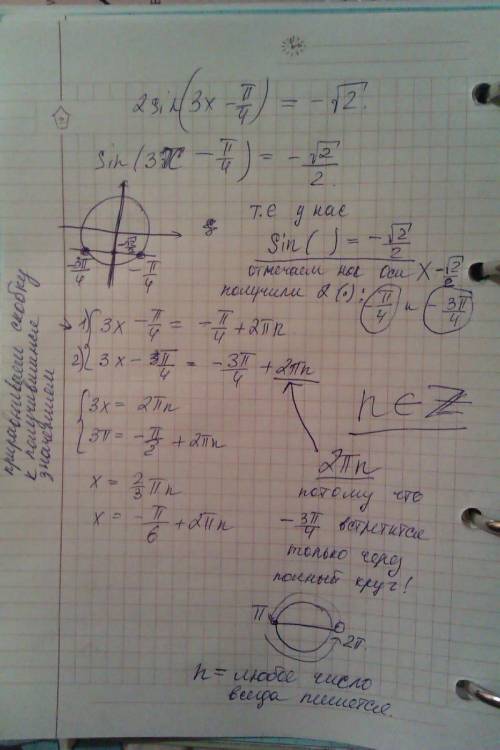 2sin(3x - π/4) = -√2.
Sin(3x - π/4) = -√2/2.
т.е у нас
Sin( ) = -√2/2
отмечаем на оси X -√2/2
получили 2(•): -π/4 и -3π/4
-√2/2
-3π/4 -π/4
приравниваем скобку
к получившимся
значением
1) 3x - π/4 = -π/4 + 2πn
2) 3x - 3π/4 = -3π/4 + 2πn
n ∈ Z
3x = 2πn
3π = -π/2 + 2πn
x = 2/3 πn
x = -π/6 + 2πn
2πn
потому что
-3π/4 встретится
только через
полный круг!
π 0
2π
n = любое число
всегда пишется.